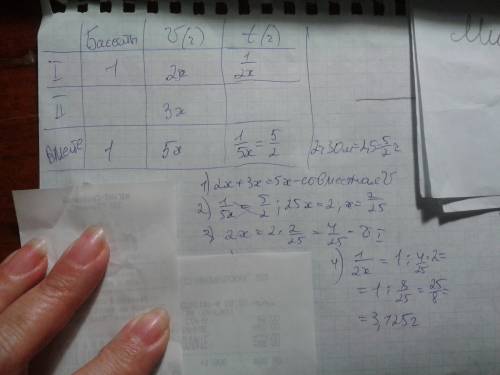 Бассейны V(ч) t(ч)
I 1 2x 1/2x
II 3x
вместе 1 5x 1/5x = 5/2
2ч30м=2,5=5/2 ч
1) 2x+3x=5x-совместная V
2) 1/5x = 5/2 ; 25x=2, x=2/25
3) 2x = 2 · 2/25 = 4/25 - V I
4) 1/2x = 1 : 4/25 · 2 =
= 1 : 8/25 = 25/8 =
= 3,125ч
Ми